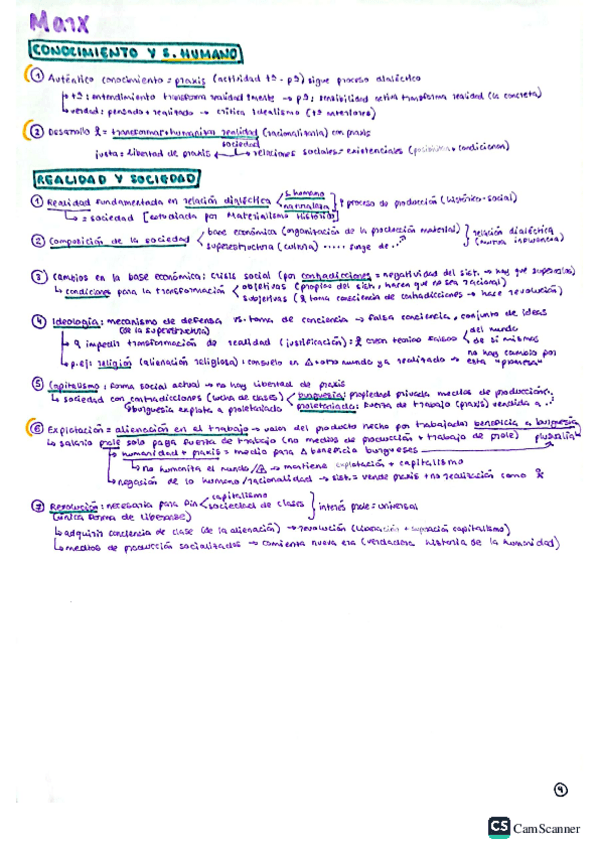 Marx
CONOCIMIENTO Y S. HUMANO
① Auténtico conocimiento = praxis (actividad tª - pª) sigue proceso dialéctico
↳ tª: entendimiento transforma realidad mente → pª: sensibilidad activa transforma realidad (la concreta)
↳ verdad: pensado + realizado → crítica idealismo (tª anteriores)
② Desarrollo = transformar + humanizar realidad (racionalizarla) con praxis
sociedad
justa = libertad de praxis relaciones sociales = existenciales (posibilitan + condicionan)
REALIDAD Y SOCIEDAD
① Realidad fundamentada en relación dialéctica s. humano
naturaleza } + proceso de producción (histórico-social)
↳ = sociedad [estudiada por Materialismo Histórico]
② Composición de la sociedad base económica (organización de la producción material)
superestructura (cultura) ..... surge de } relación dialéctica (mutua influencia)
③ Cambios en la base económica: crisis social (por contradicciones = negatividad del sist. → hay que superarlas)
↳ condiciones para la transformación objetivas (propias del sist., hacen que no sea racional)
subjetivas ( toma consciencia de contradicciones → hace revolución)
④ Ideología: mecanismo de defensa vs. toma de conciencia → falsa conciencia, conjunto de ideas
(de la superestructura)
impedir transformación de realidad (justificación): creen teorías falsas del mundo
de sí mismos
↳ p.ej: religión (alienación religiosa): consuelo en otro mundo ya realizado → no hay cambios por esta "promesa"
⑤ Capitalismo: forma social actual → no hay libertad de praxis
↳ sociedad con contradicciones (lucha de clases) burguesía: propiedad privada medios de producción
burguesía explota a proletariado proletariado: fuerza de trabajo (praxis) vendida a
⑥ Explotación = alienación en el trabajo → valor del producto hecho por trabajador beneficia a burguesía
↳ salario prole solo paga fuerza de trabajo (no medios de producción + trabajo de prole) plusvalía
↳ humanidad + praxis = medio para beneficio burgueses
↳ no humaniza el mundo → mantiene explotación + capitalismo
↳ negación de lo humano/racionalidad → sist. = vende praxis + no realización como
⑦ Revolución: necesaria para fin capitalismo
sociedad de clases } interés prole = universal
(única forma de liberarse)
↳ adquirir conciencia de clase (de la alienación) → revolución (liberación + superación capitalismo)
↳ medios de producción socializados → comienza nueva era (verdadera historia de la humanidad)
CS CamScanner